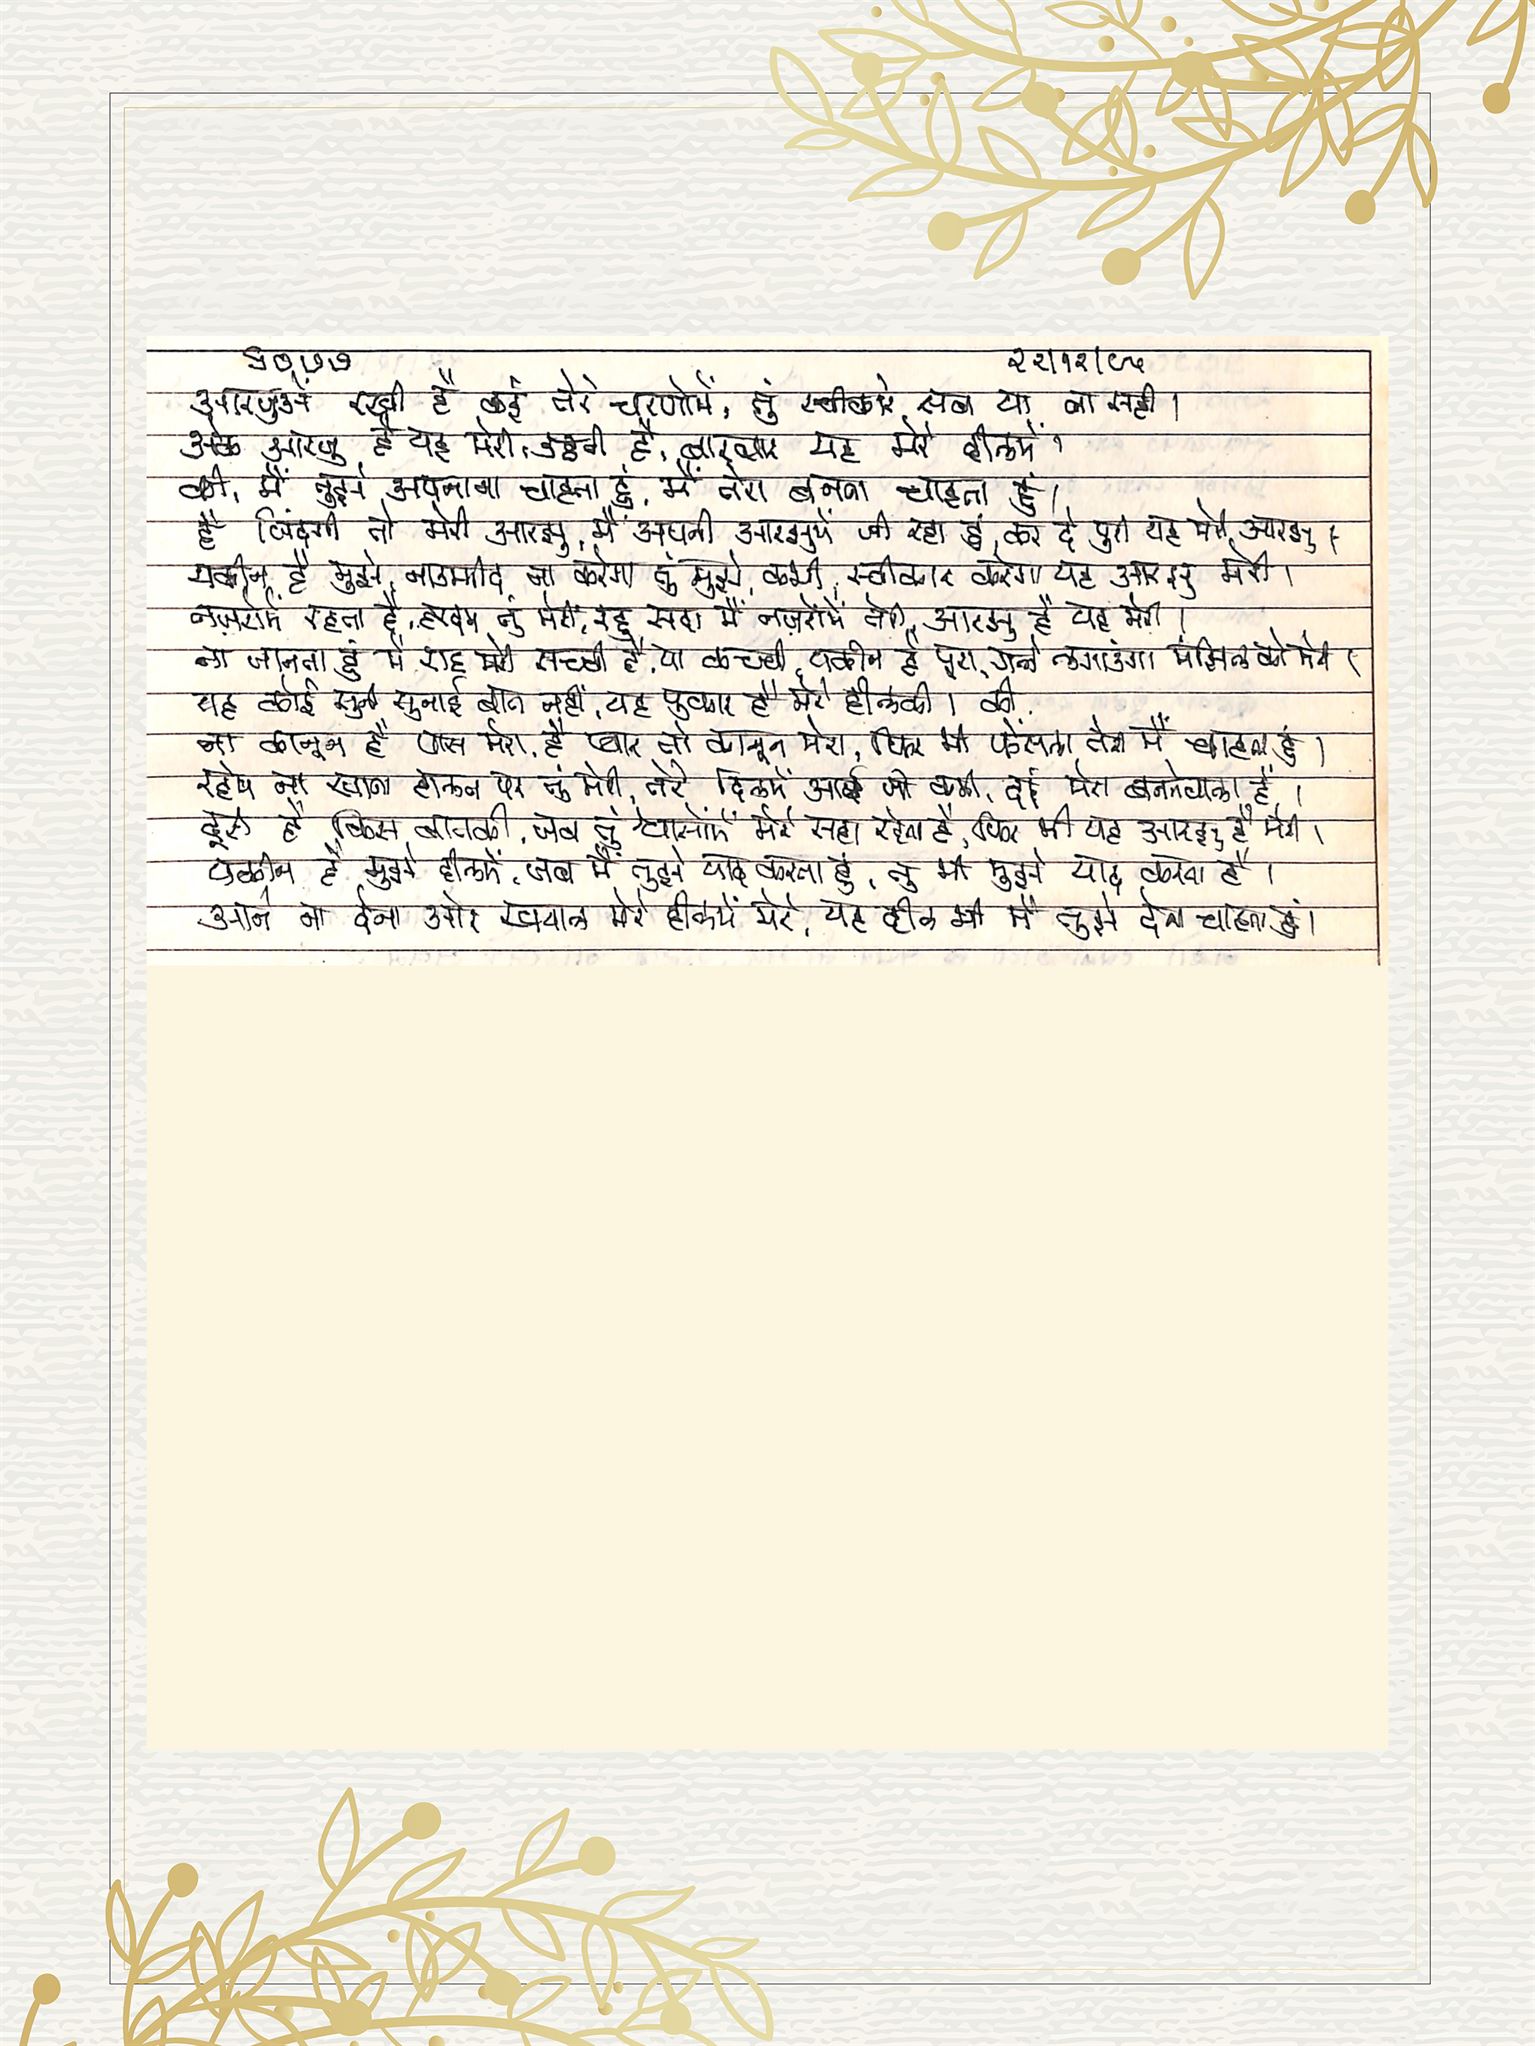 ૬૦૫૭ २२/१२/८५
आरजुओं रखी है कई तेरे चरणोमें, तुं स्वीकारे सब या ना सही।
अेक आरजु है यह मेरी, उठती है, बारबार यह मेरे दीलमें।
की, मैं तुझे अपनाना चाहता हुं, मैं तेरा बनना चाहता हुं।
है जिंदगी तो मेरी आरझु, मैं अपनी आरझुमें जी रहा हुं, कर दे पुरी यह मेरी आरझु।
यकीन है मुझे, नाउम्मीद ना करेगा तुं मुझे कभी, स्वीकार करेगा यह आरझु मेरी।
नज़रोमें रहता है, हरदम तुं मेरी, रहु सदा मैं नज़रोमें तेरी, आरझु है यह मेरी।
ना जानता हुं मैं राह मेरी सच्ची है, या कच्ची, यकीन है पुरा, गले लगाउंगा मंझिल को मेरी।
यह कोई सुनी सुनाई बात नहीं, यह पुकार है मेरे दीलकी। की
ना कानून है पास मेरा, है प्यार तो कानून मेरा, फिर भी फेसला तेरा मैं चाहता हुं।
रहेम ना खाना हालत पर तुं मेरी, तेरे दिलमें आई जो कमी, दर्द मेरा बननेवाला है।
दूरी है किस बातकी, जब तुं श्वासोंमें मेरे सदा रहेता है, फिर भी यह आरझु है मेरी।
यकीन है मुझे दीलमें, जब मैं तुझे याद करता हुं, तु भी मुझे याद करता है।
आने ना देना ओर खयाल मेरे दीलमें मेरे, यह दील भी मैं तुझे देना चाहता हुं।